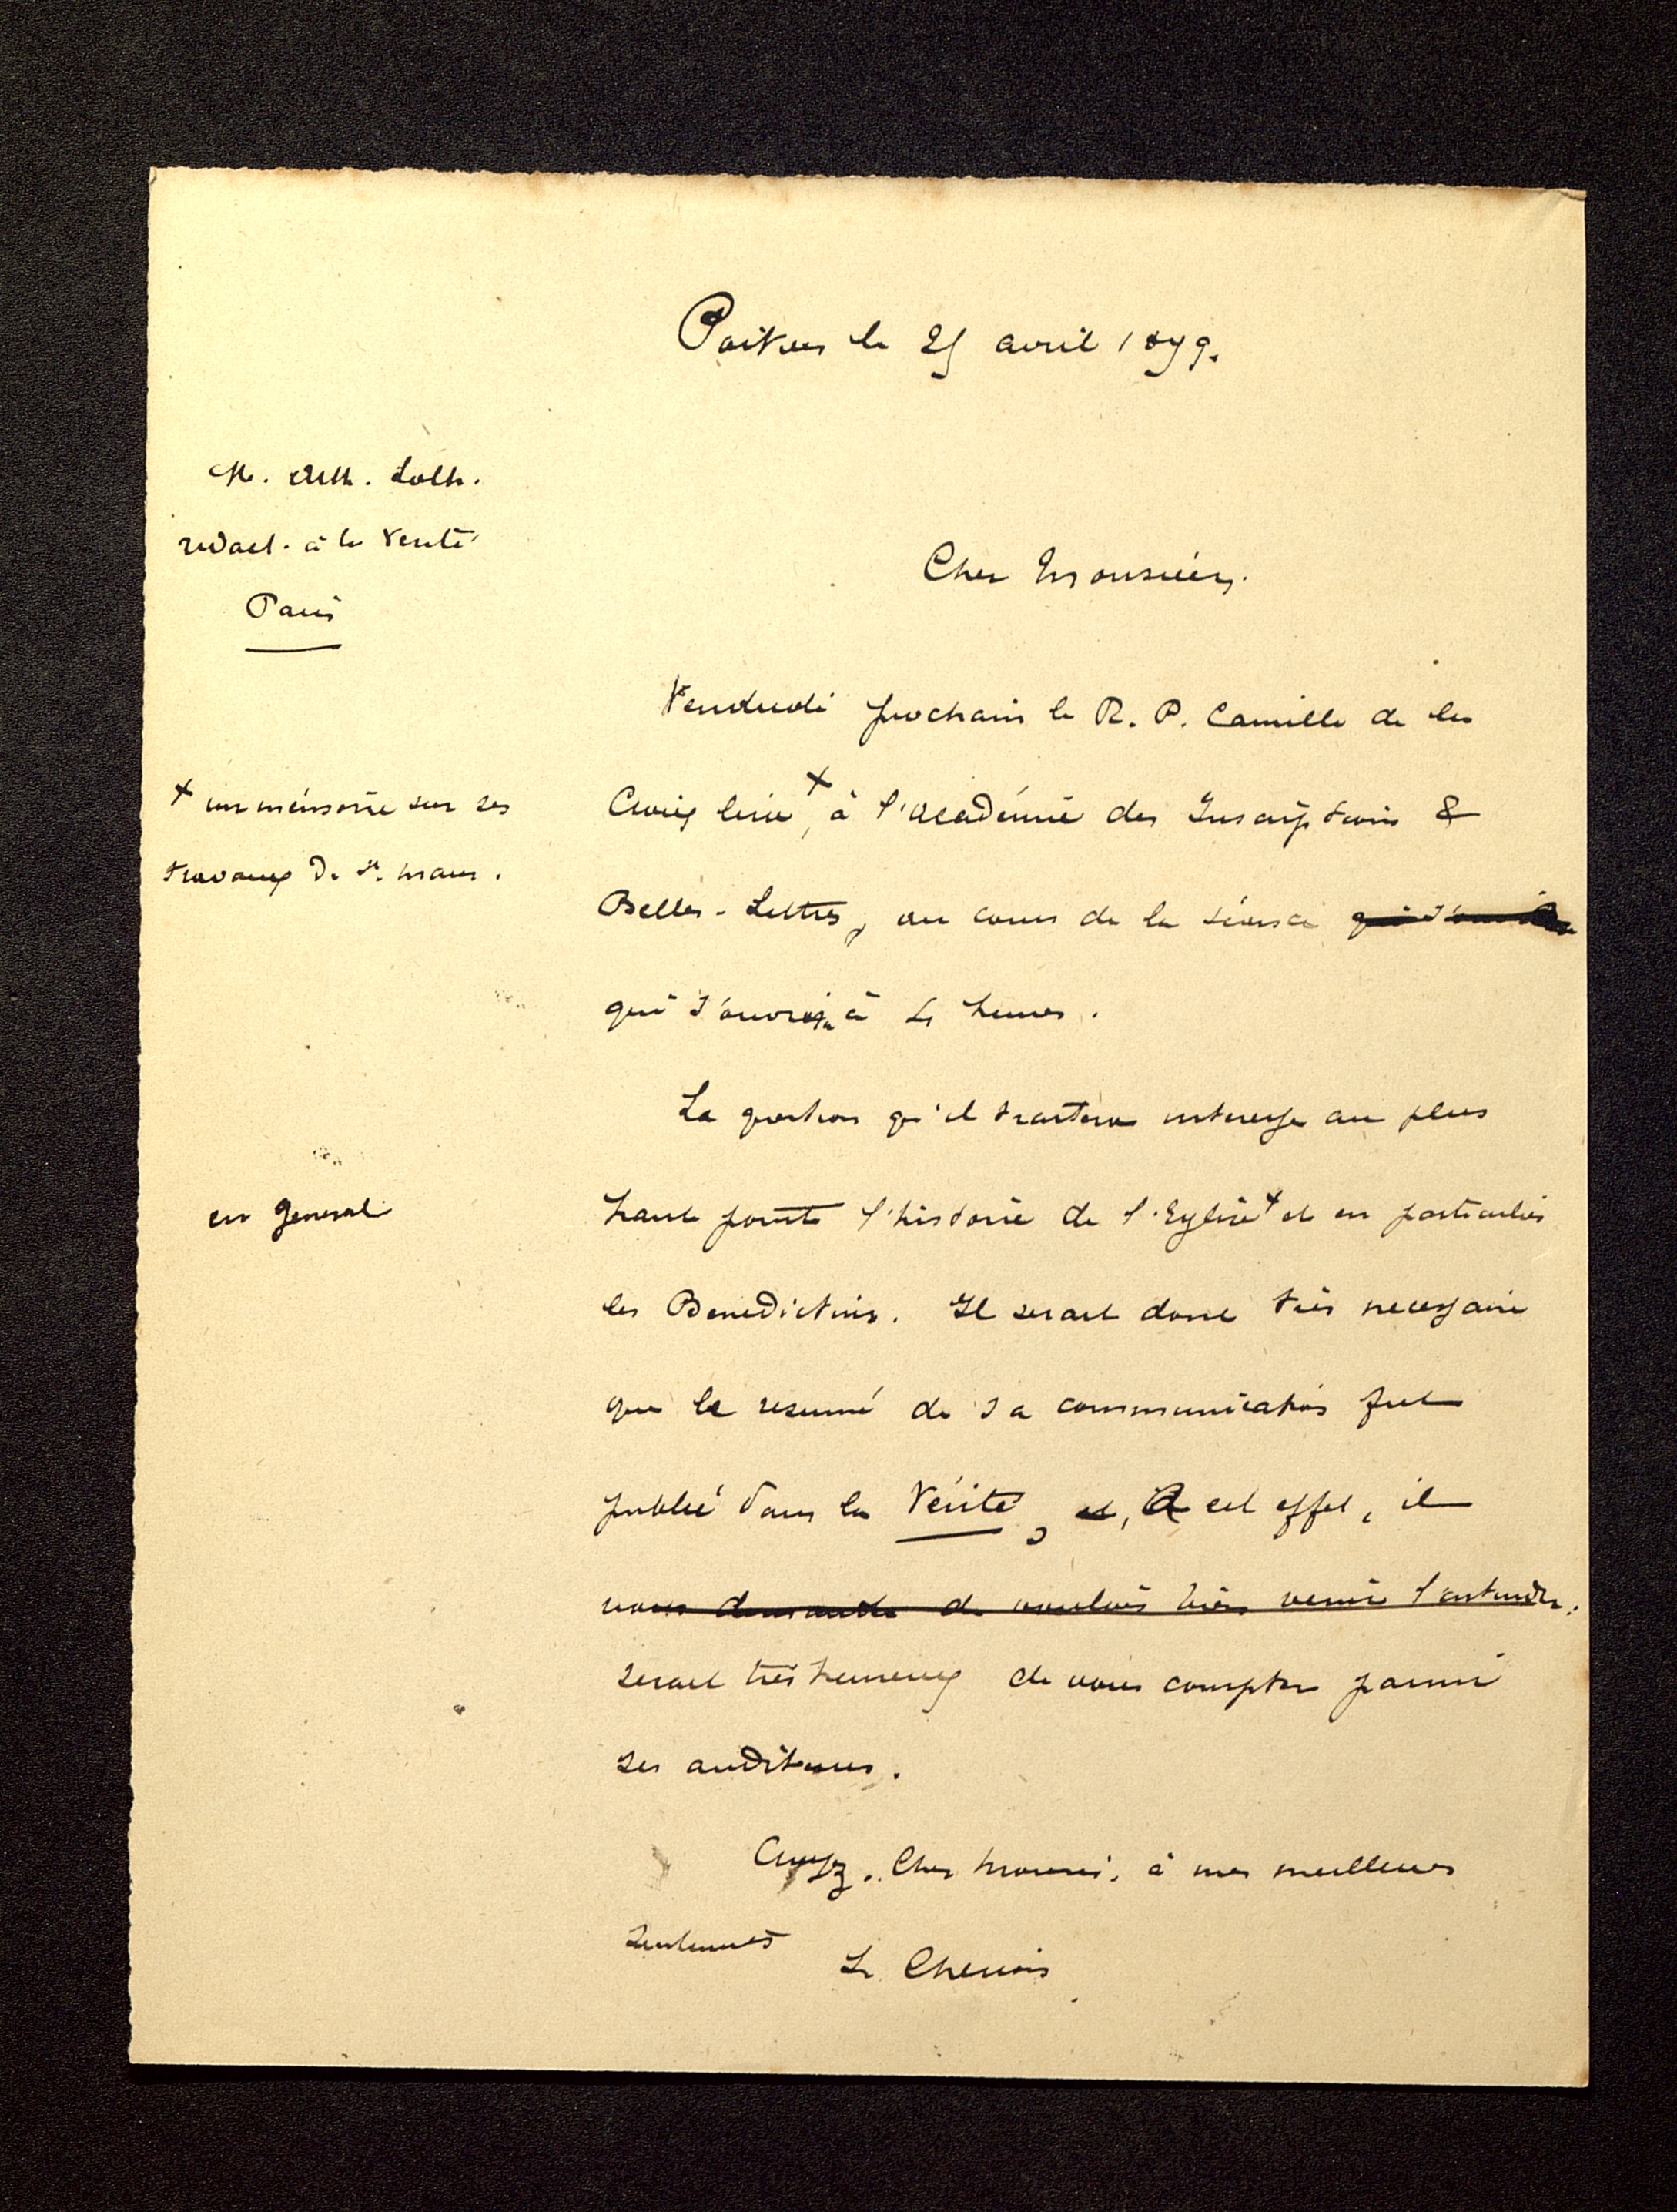 Poitiers le 25 avril 1899.
M. Arth. Loth.
redact. à la Verité
Paris
Cher Monsieur.
Vendredi prochain le R. P. Camille de la
+ un mémoire sur ses
Croix lira + à l'Académie des Inscriptions &
travaux de St. Maur.
Belles-Lettres, au cours de la séance qui s'ouvrira
qui s'ouvrira à heures.
La question qu'il traitera interesse au plus
en general
haut point l'histoire de l'Eglise + et en particulier
les Benedictins. Il serait donc très necessaire
que le resumé de sa communication fut
publié dans la Vérité, et, A cet effet, il
vous demande de vouloir bien venir l'entendre.
serait très heureux de vous compter parmi
ses auditeurs.
Croyez, Cher Monsieur, à mes meilleurs
sentiments